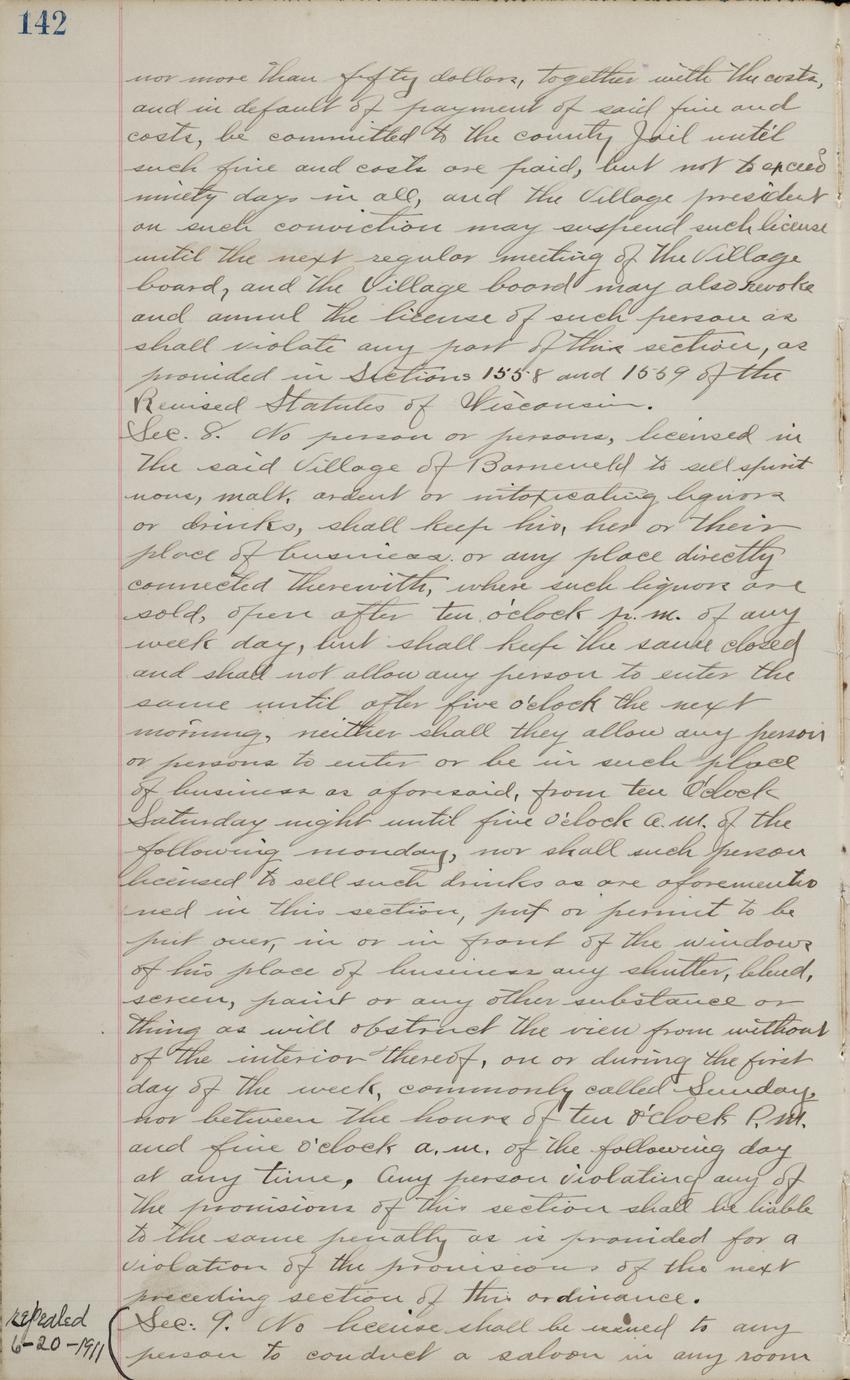 142
nor more than fifty dollars, together with the costs,
and in default of payment of said fine and
costs, be committed to the county Jail until
such fine and costs are paid, but not to exceed
ninety days in all, and the Village president
on such conviction may suspend such license
until the next regular meeting of the Village
board, and the Village board may also revoke
and annul the license of such person as
shall violate any part of this section, as
provided in Sections 1558 and 1559 of the
Revised Statutes of Wisconsin.
Sec. 8. No person or persons, licensed in
the said Village of Barneveld to sell spirit
uous, malt, ardent or intoxicating liquors
or drinks, shall keep his, her or their
place of business or any place directly
connected therewith, where such liquors are
sold, open after ten o'clock p.m. of any
week day, but shall keep the same closed
and shall not allow any person to enter the
same until after five o'clock the next
morning, neither shall they allow any person
or persons to enter or be in such place
of business as aforesaid, from ten O'clock
Saturday night until five o'clock a.m. of the
following monday, nor shall such person
licensed to sell such drinks as are aforementio
ned in this section, put or permit to be
put over, in or in front of the windows
of his place of business any shutter, blind,
screen, paint or any other substance or
thing as will obstruct the view from without
of the interior thereof, on or during the first
day of the week, commonly called Sunday,
nor between the hours of ten o'clock P.M.
and five o'clock a.m. of the following day
at any time. Any person violating any of
the provisions of this section shall be liable
to the same penalty as is provided for a
violation of the provisions of the next
preceding section of this ordinance.
repealed
6-20-1911
Sec. 9. No license shall be issued to any
person to conduct a saloon in any room